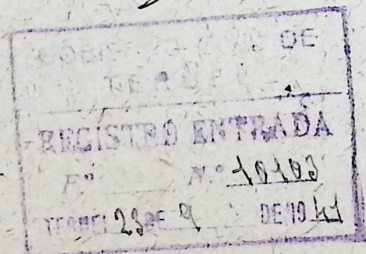 DE
REGISTRO ENTRADA
F.º N.º 10103
TERUEL 23 DE 9 DE 19 41